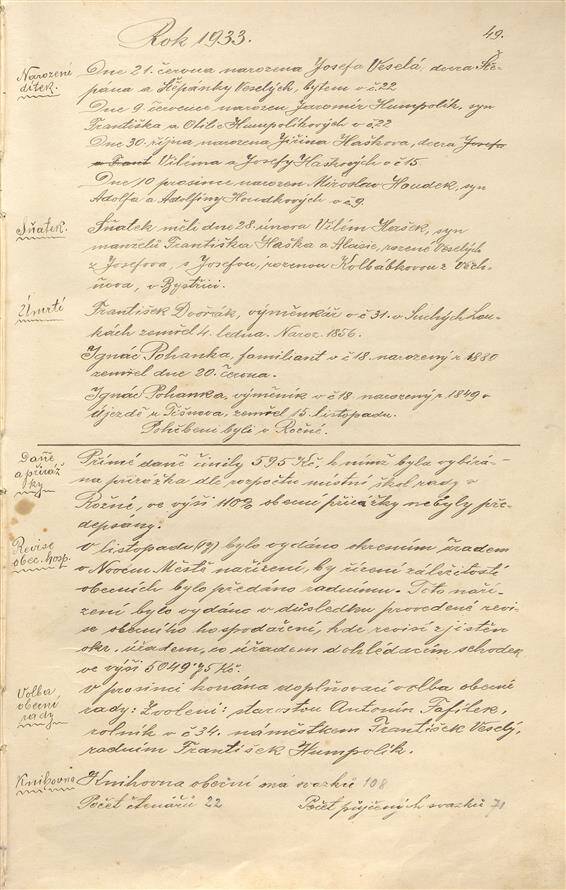 Rok 1933.
49.
Narození
dítek.
Dne 21. června narozena Josefa Veselá, dcera Ště-
pána a Štěpánky Veselých, bytem v č 22
Dne 9. července narozen Jaromír Humpolík, syn
Františka a Otilie Humpolíkových v č 22
Dne 30. října narozena Jiřina Hašková, dcera Josefa
a Frant Viléma a Josefy Haškových v č 15.
Dne 10 prosince narozen Miroslav Houdek, syn
Adolfa a Adolfiny Houdkových v č 9.
Sňatek.
Sňatek měli dne 28. února Vilém Hašek, syn
manželů Františka Haška a Aloisie, rozené Veselých
z Josefova, s Josefou, rozenou Kolbábkovou z Věch-
nova, v Bystřici.
Úmrtí
František Dvořák, výměnkář v č 31. v Suchých Lou-
kách zemřel 4. ledna. Naroz. 1856.
Ignác Pohanka, familiant v č 18. narozený r 1880
zemřel dne 20. června.
Ignác Pohanka, výměník v č 18 narozený r 1849 v
Újezdě u Tišnova, zemřel 15. listopadu.
Pohřbeni byli v Rožné.
Daně
a přiráž
ky
Přímé daně činily 595 Kč, k nimž byla vybírá-
na přirážka dle rozpočtu místní škol. rady v
Rožné, ve výši 110% obecní přirážky nebyly pře-
depsány.
Revise
obec. hosp.
V listopadu bylo vydáno okresním úřadem
v Novém Městě nařízení, by řízení záležitostí
obecních bylo předáno radnímu. Toto naří-
zení bylo vydáno v důsledku provedené revi-
se obecního hospodaření, kde revisí zjištěn
okr. úřadem, co úřadem dohlédacím schodek
ve výši 5049.75 Kč.
Volba
obecní
rady
V prosinci konána doplňovací volba obecní
rady: Zvoleni: starostou Antonín Fafílek,
rolník v č 34. náměstkem František Veselý,
radním František Humpolík.
Knihovna
Knihovna obecní má svazků 108
Počet čtenářů 22 Počet půjčených svazků 71